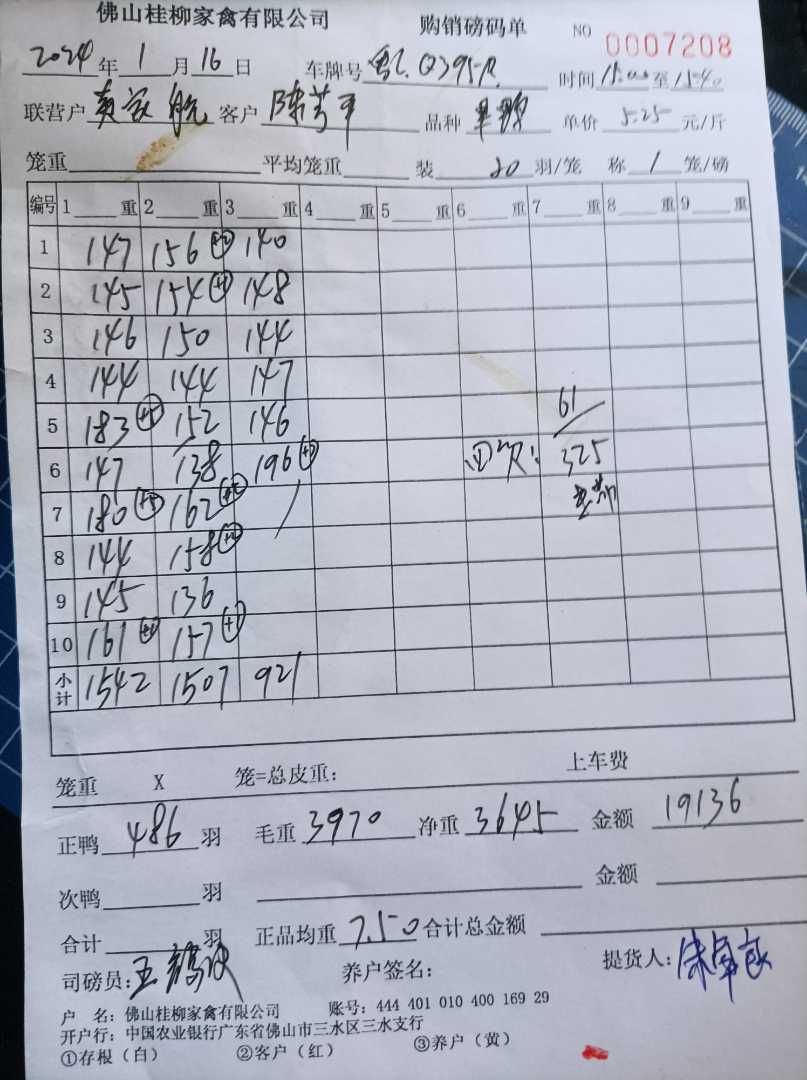 佛山桂柳家禽有限公司 购销磅码单 NO 0007208
2024年1月16日 车牌号 Q395R 时间15:00至15:40
联营户 黄 航 客户 陈 平 品种 单价 5.25 元/斤
笼重 平均笼重 装 20 羽/笼 称 1 笼/磅
编号 1 重 2 重 3 重 4 重 5 重 6 重 7 重 8 重 9 重
1 147 156 140
2 145 154 148
3 146 150 144
4 144 144 147 61
5 183 +5 152 146
6 147 138 196 325
7 180 +5 162
8 144 158
9 145 136
10 161 157 +1
小计 1542 1507 921
笼重 X 笼=总皮重: 上车费
正鸭 486 羽 毛重 3970 净重 3645 金额 19136
次鸭 羽 金额
合计 羽 正品均重 7.50 合计总金额
司磅员: 王 养户签名: 提货人:
户 名: 佛山桂柳家禽有限公司 账号: 444 401 010 400 169 29
开户行: 中国农业银行广东省佛山市三水区三水支行
①存根（白） ②客户（红） ③养户（黄）